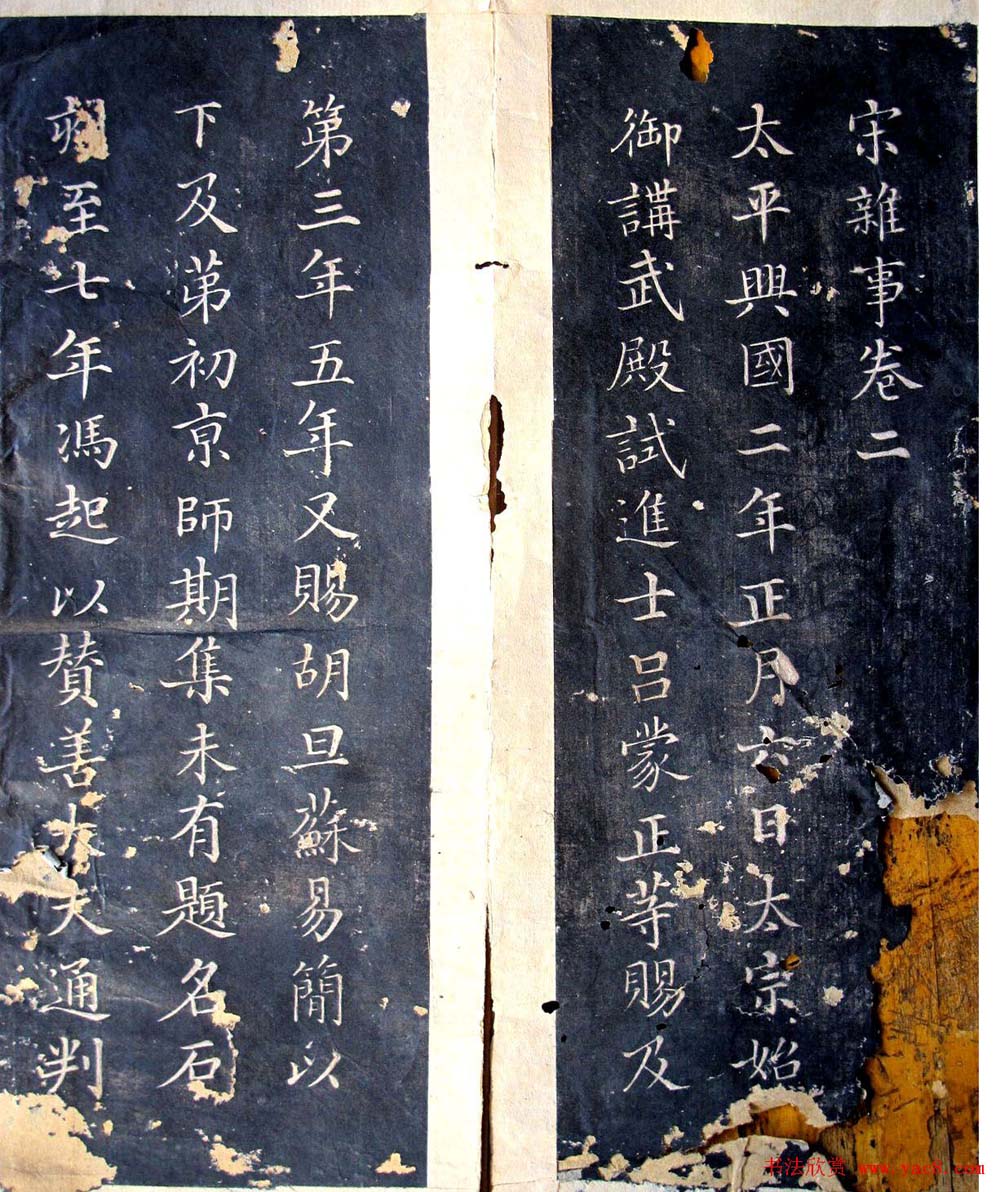 宋雜事卷二
太平興國二年正月六日太宗始
御講武殿試進士吕蒙正等賜及
第三年五年又賜胡旦蘇易簡以
下及第初京師期集未有題名石
刻至七年馮起以賛善大夫通判
书法欣赏 www.yac8.com